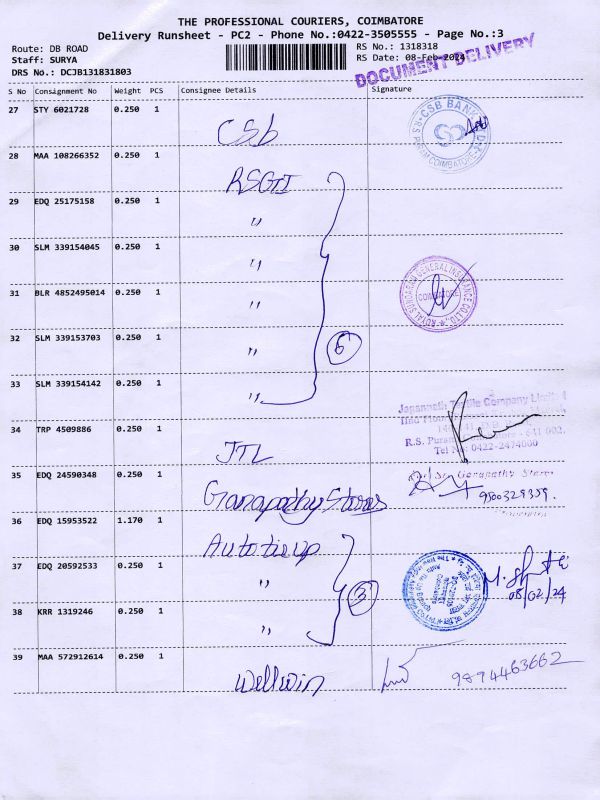 THE PROFESSIONAL COURIERS, COIMBATORE
Delivery Runsheet - PC2 - Phone No.:0422-3505555 - Page No.:3
Route: DB ROAD
Staff: SURYA
DRS No.: DCJB131831803
RS No.: 1318318
RS Date: 08-Feb-2024
DOCUMENT DELIVERY
S No Consignment No Weight PCS Consignee Details Signature
27 STY 6021728 0.250 1
CSb
CSB BANK
COIMBATORE
28 MAA 108266352 0.250 1
RSGII
29 EDQ 25175158 0.250 1
"
30 SLM 339154045 0.250 1
"
31 BLR 4852495014 0.250 1
"
ROYAL SUNDARAM GENERAL INSURANCE CO. LTD.
COIMBATORE
32 SLM 339153703 0.250 1
"
6
33 SLM 339154142 0.250 1
"
34 TRP 4509886 0.250 1
JTL
Jagannath Textile Company Limited
R.S. Puram 641 002.
Tel No: 0422-2474000
35 EDQ 24590348 0.250 1
Ganapathy Stores
Sri Ganapathy Stores
9500329359.
36 EDQ 15953522 1.170 1
Autotieup
37 EDQ 20592533 0.250 1
"
3
08/02/24
38 KRR 1319246 0.250 1
"
39 MAA 572912614 0.250 1
Wellwin
9894463662